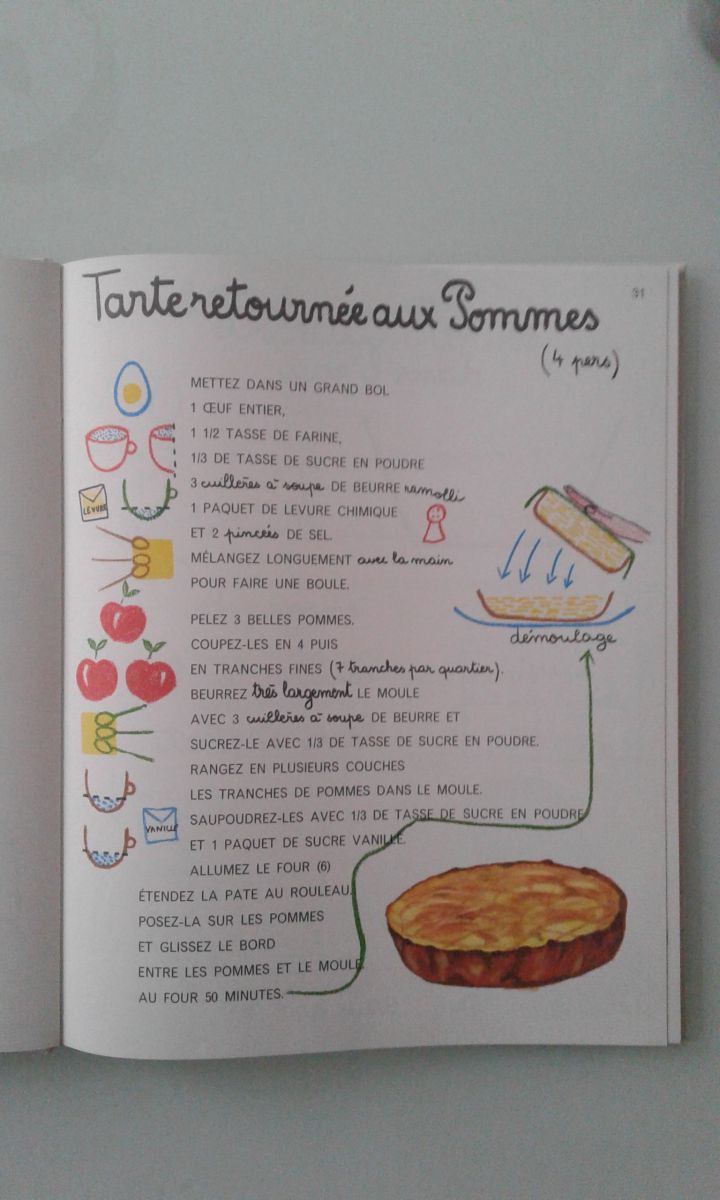 31
Tarte retournée aux Pommes
(4 pers)
METTEZ DANS UN GRAND BOL
1 ŒUF ENTIER,
1 1/2 TASSE DE FARINE,
1/3 DE TASSE DE SUCRE EN POUDRE
3 cuillères à soupe DE BEURRE ramolli
LEVURE
1 PAQUET DE LEVURE CHIMIQUE
ET 2 pincées DE SEL.
MÉLANGEZ LONGUEMENT avec la main
POUR FAIRE UNE BOULE.
PELEZ 3 BELLES POMMES.
COUPEZ-LES EN 4 PUIS
EN TRANCHES FINES (7 tranches par quartier).
BEURREZ très largement LE MOULE
AVEC 3 cuillères à soupe DE BEURRE ET
SUCREZ-LE AVEC 1/3 DE TASSE DE SUCRE EN POUDRE.
RANGEZ EN PLUSIEURS COUCHES
LES TRANCHES DE POMMES DANS LE MOULE.
SAUPOUDREZ-LES AVEC 1/3 DE TASSE DE SUCRE EN POUDRE
VANILLE
ET 1 PAQUET DE SUCRE VANILLÉ.
ALLUMEZ LE FOUR (6)
ÉTENDEZ LA PATE AU ROULEAU.
POSEZ-LA SUR LES POMMES
ET GLISSEZ LE BORD
ENTRE LES POMMES ET LE MOULE.
AU FOUR 50 MINUTES.
démoulage